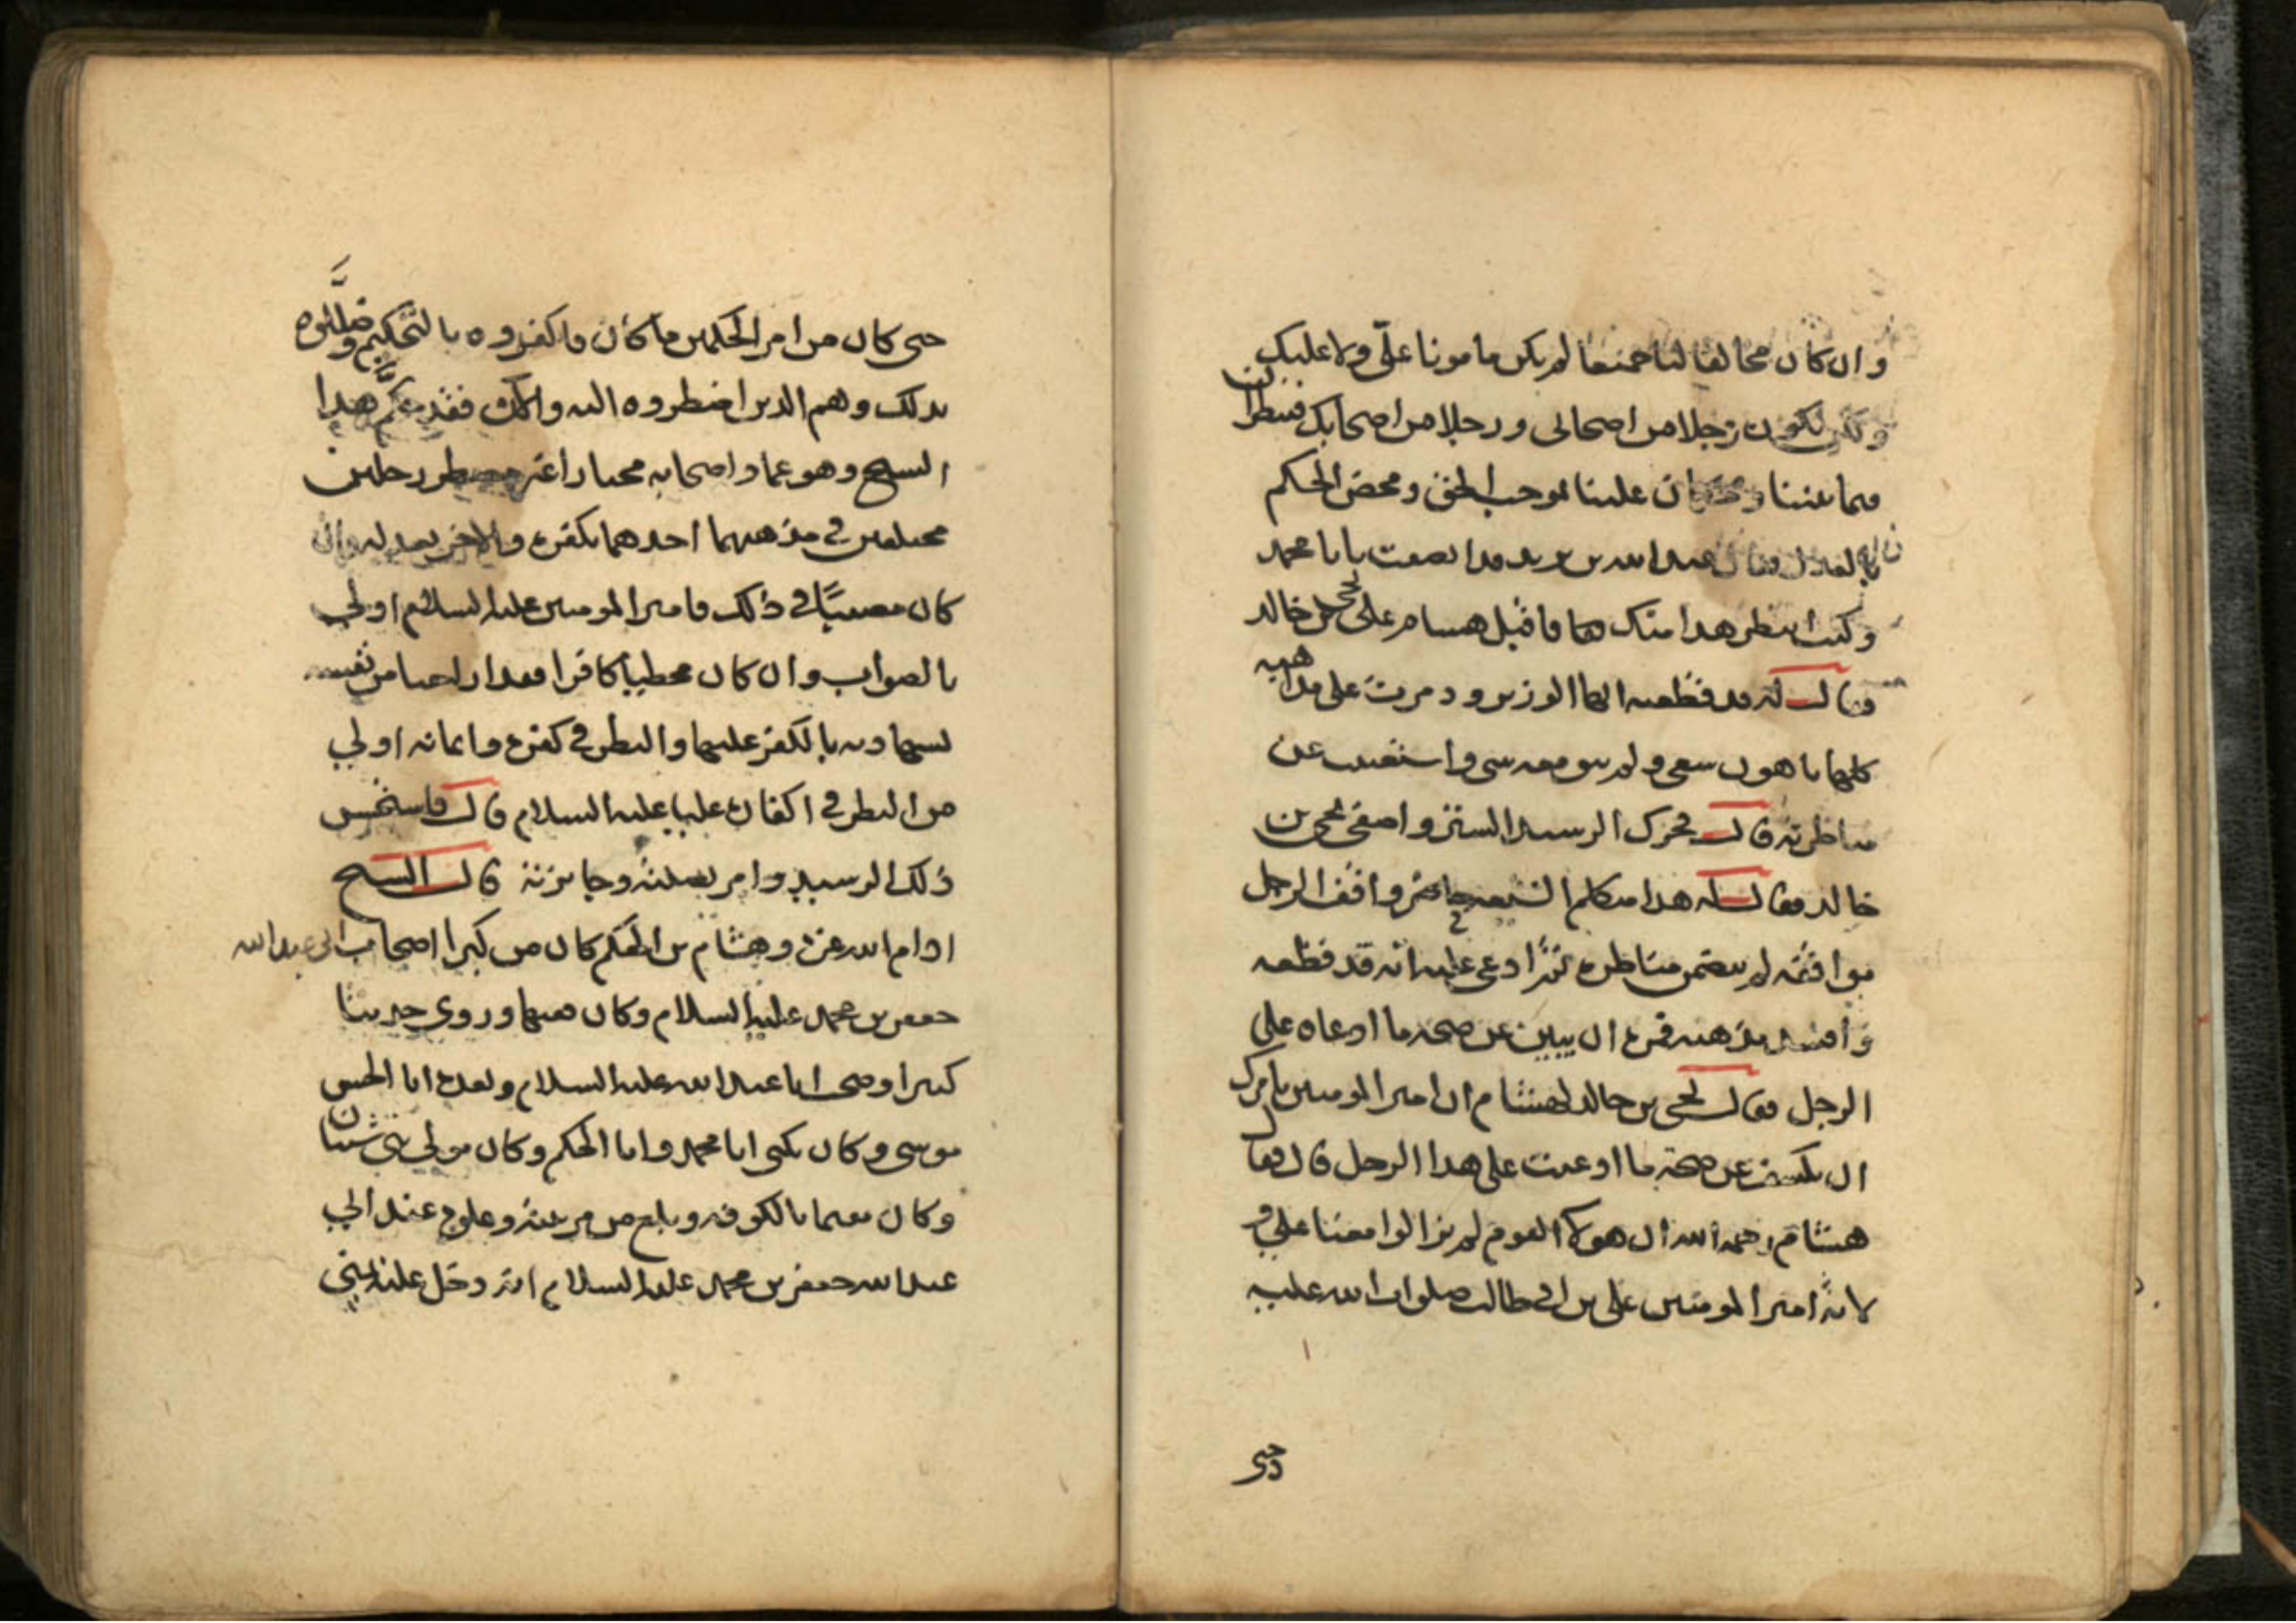 وان كان مخالفا لنا جميعا لم يكن مامونا علي ولا عليك
ولكن يكون رجلا من اصحابي ورجلا من اصحابك فينظران
فيما بيننا ويحكمان علينا بموجب الحق ومحض الحكم
بالعدل فقال عبد الله بن يزيد قد انصفت يا با محمد
وكنت انتظر هذا منك فاقبل هشام على يحيى بن خالد
فقال له قد قطعته ايها الوزير ودمرت على مذاهبه
كلها باهون سعي ولم يبق معه شي واستغنيت عن
مناظرته قال فحرك الرشيد الستر واصغى يحيى بن
خالد فقال له هذا متكلم الشيعة واقف الرجل
موافقة لم يتضمن مناظرة ثم ادعى عليه انه قد قطعه
وافسد مذهبه فمره ان يبين عن صحة ما ادعاه على
الرجل فقال يحيى بن خالد لهشام ان امير المومنين يامرك
ان تكشف عن صحة ما ادعيت على هذا الرجل قال فقال
هشام رحمه الله ان هولاء القوم لم يزالوا معنا على و
لاية امير المومنين علي بن ابي طالب صلوات الله عليه
حتى
حتى كان من امر الحكمين ما كان فاكفروه بالتحكيم وضللوه
بذلك وهم الذين اضطروه اليه والان فقد حكم هذا
الشيخ وهو عماد اصحابه مختارا غير مضطر رجلين
مختلفين في مذهبهما احدهما يكفره والاخر يعدله فان
كان مصيبا في ذلك فامير المومنين عليه السلام اولى
بالصواب وان كان مخطيا كافرا فقد اراحنا من نفسه
بشهادته بالكفر عليها والنظر في كفره وايمانه اولى
من النظر في اكفاره عليا عليه السلام قال فاستحسن
ذلك الرشيد وامر بصلته وجايزته قال الشيخ
ادام الله عزه وهشام بن الحكم كان من كبرا اصحاب ابي عبد الله
جعفر بن محمد عليه السلام وكان فقيها وروى حديثا
كثيرا وصحب ابا عبد الله عليه السلام وبعده ابا الحسن
موسى وكان يكنى ابا محمد وابا الحكم وكان مولى بني شيبان
وكان مقيما بالكوفة وبلغ من مرتبته وعلوه عند ابي
عبد الله جعفر بن محمد عليه السلام انه دخل عليه بمنى